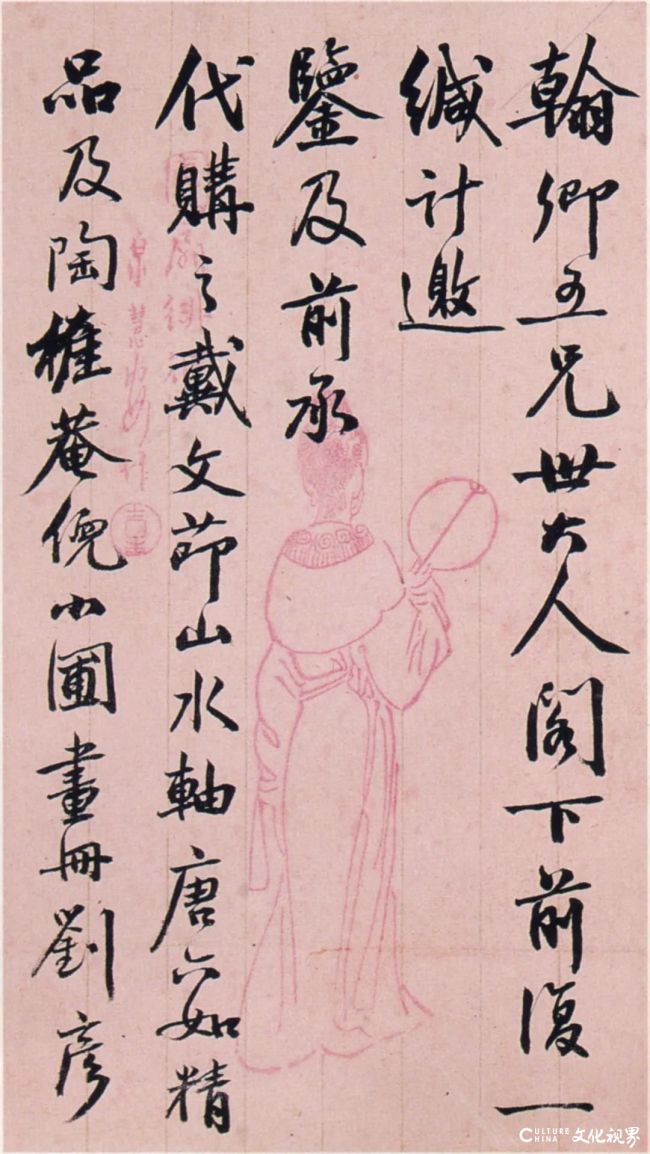 翰卿五兄世大人閣下前復一
緘計邀
鑒及前承
代購之戴文節山水軸唐六如精
品及陶榷菴倪小圃畫冊劉彥
CULTURE CHINA 文化视界